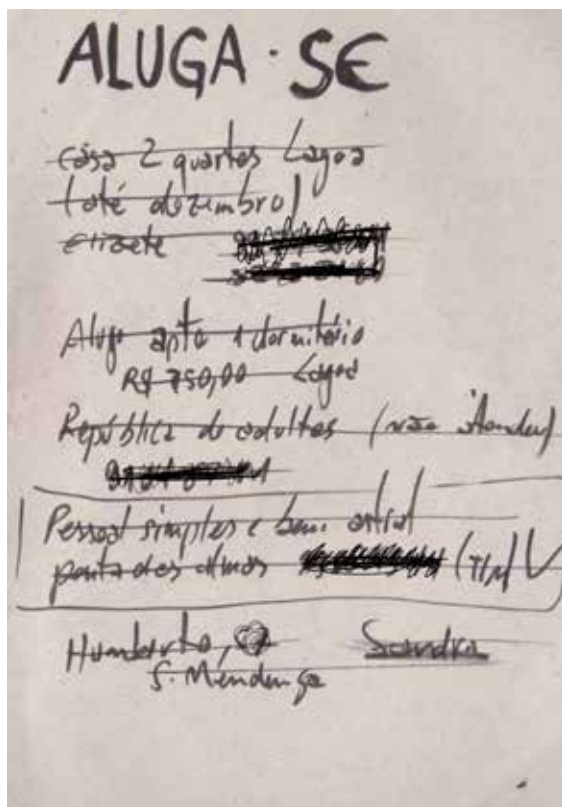 ALUGA-SE
casa 2 quartos Lagoa
(até dezembro)
elizete
Alugo apto 1 dormitório
R$ 750,00 Lagoa
República de adultos (não atendeu)
Pessoal simples e bem astral
ponta das almas (TIM)
Humberto,
S. Mendonça
Sandra